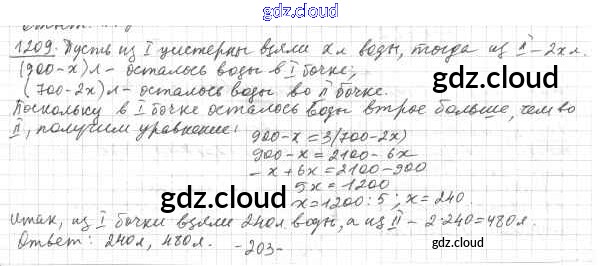 gdz.cloud
1209. Пусть из I цистерны взяли x л воды, тогда из II – 2x л.
(900-x) л – осталось воды в I бочке;
(700-2x) л – осталось воды во II бочке.
gdz.cloud
Поскольку в I бочке осталось воды втрое больше, чем во
II, получим уравнение:
900-x=3(700-2x)
900-x=2100-6x
-x+6x=2100-900
5x=1200
gdz.cloud
x=1200:5; x=240.
Итак, из I бочки взяли 240л воды, а из II – 2·240=480л.
Ответ: 240л, 480л.
-203-
gdz.cloud